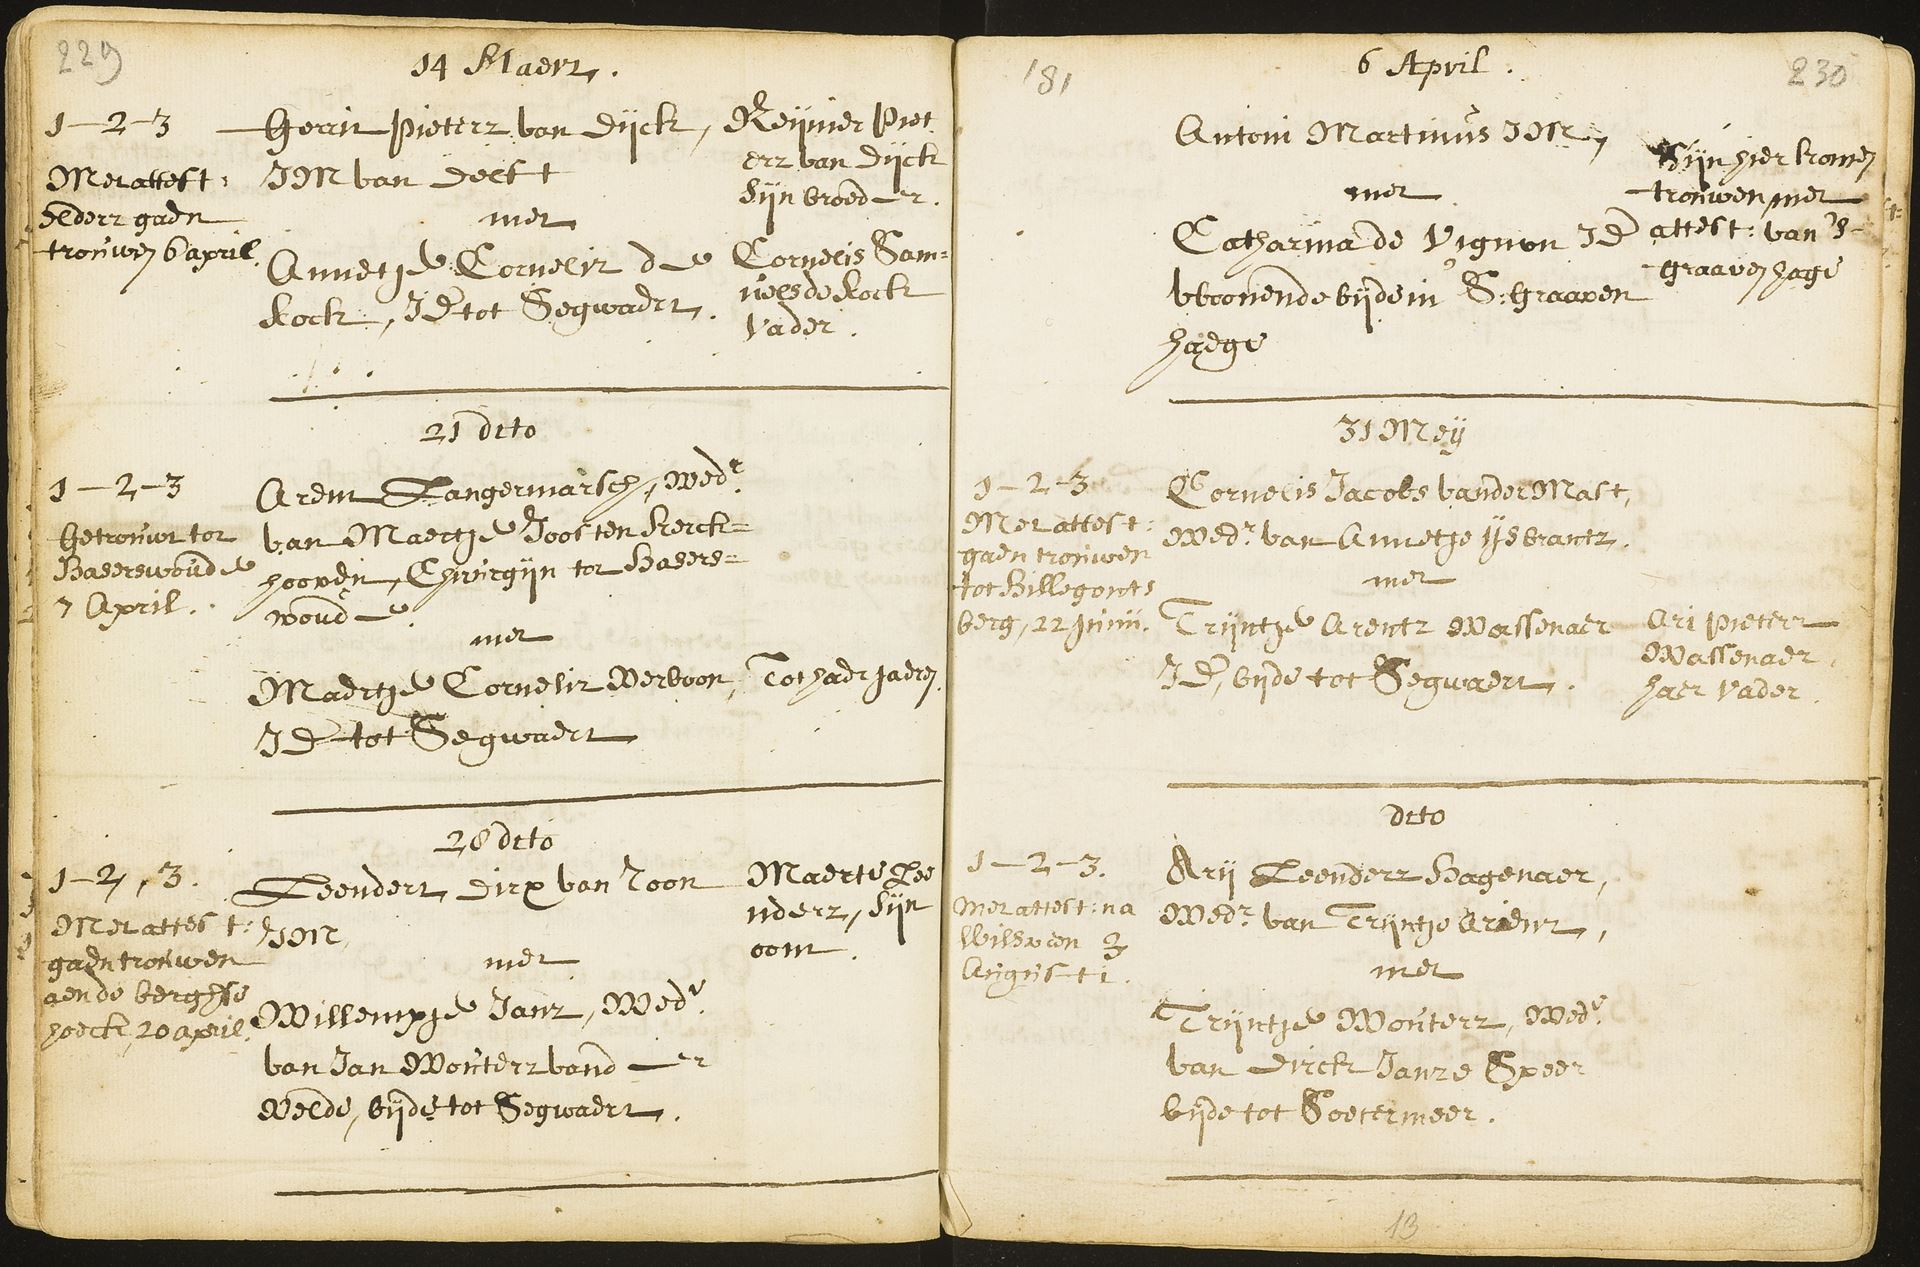 229
14 Maert.
1-2-3
Met attest:
elders gaen
trouwen 6 april.
Gerrit Pieterz van Dijck,
JM van delft
met
Annetje Cornelis de
Kock, JD tot Segwaert.
Reijnier Piet
erz van Dijck
sijn broeder.
Cornelis Sam=
uels de Kock
Vader.
21 dito
1-2-3
Getrouwt tot
Haserswoude
7 April.
Arent Langermarsch, Wedr
van Maertje Joosten Kerck=
hooven, Chirurgijn tot Hasers=
woude.
met
Maertje Cornelis Verboon,
JD tot Segwaert
Tot haer jaeren.
28 dito
1-2, 3.
Met attest:
gaen trouwen
aende berghse
hoeck, 20 april.
Leendert Dirx van Toon
JM,
met
Willempje Janz, Wede.
van Jan Wouterz vander
Velde, bijde tot Segwaert.
Maerte Lee
nderz, sijn
oom.
181
230
6 April.
Antoni Martinus JM,
met
Catharina de Vignon JD
woonende bijde in S: Graaven
haege
Sijn hier komen
trouwen, met
attest: van 's-
Graavenhage
31 Meij
1-2-3
Met attest:
gaen trouwen
tot Hillegonts
berg, 22 Junii.
Cornelis Jacobs vander Mast,
Wedr. van Annetje IJsbrantz.
met
Trijntje Arentz Wassenaer
JD, bijde tot Segwaert.
Ari Pieterz
Wassenaer,
haer Vader.
dito
1-2-3.
Met attest: na
Wilsveen 3
Augusti.
Arij Leenderz Hagenaer,
Wedr. van Trijntje Ariens,
met
Trijntje Wouterz, Wede.
van Dirck Janze Speer
bijde tot Soetermeer.
13